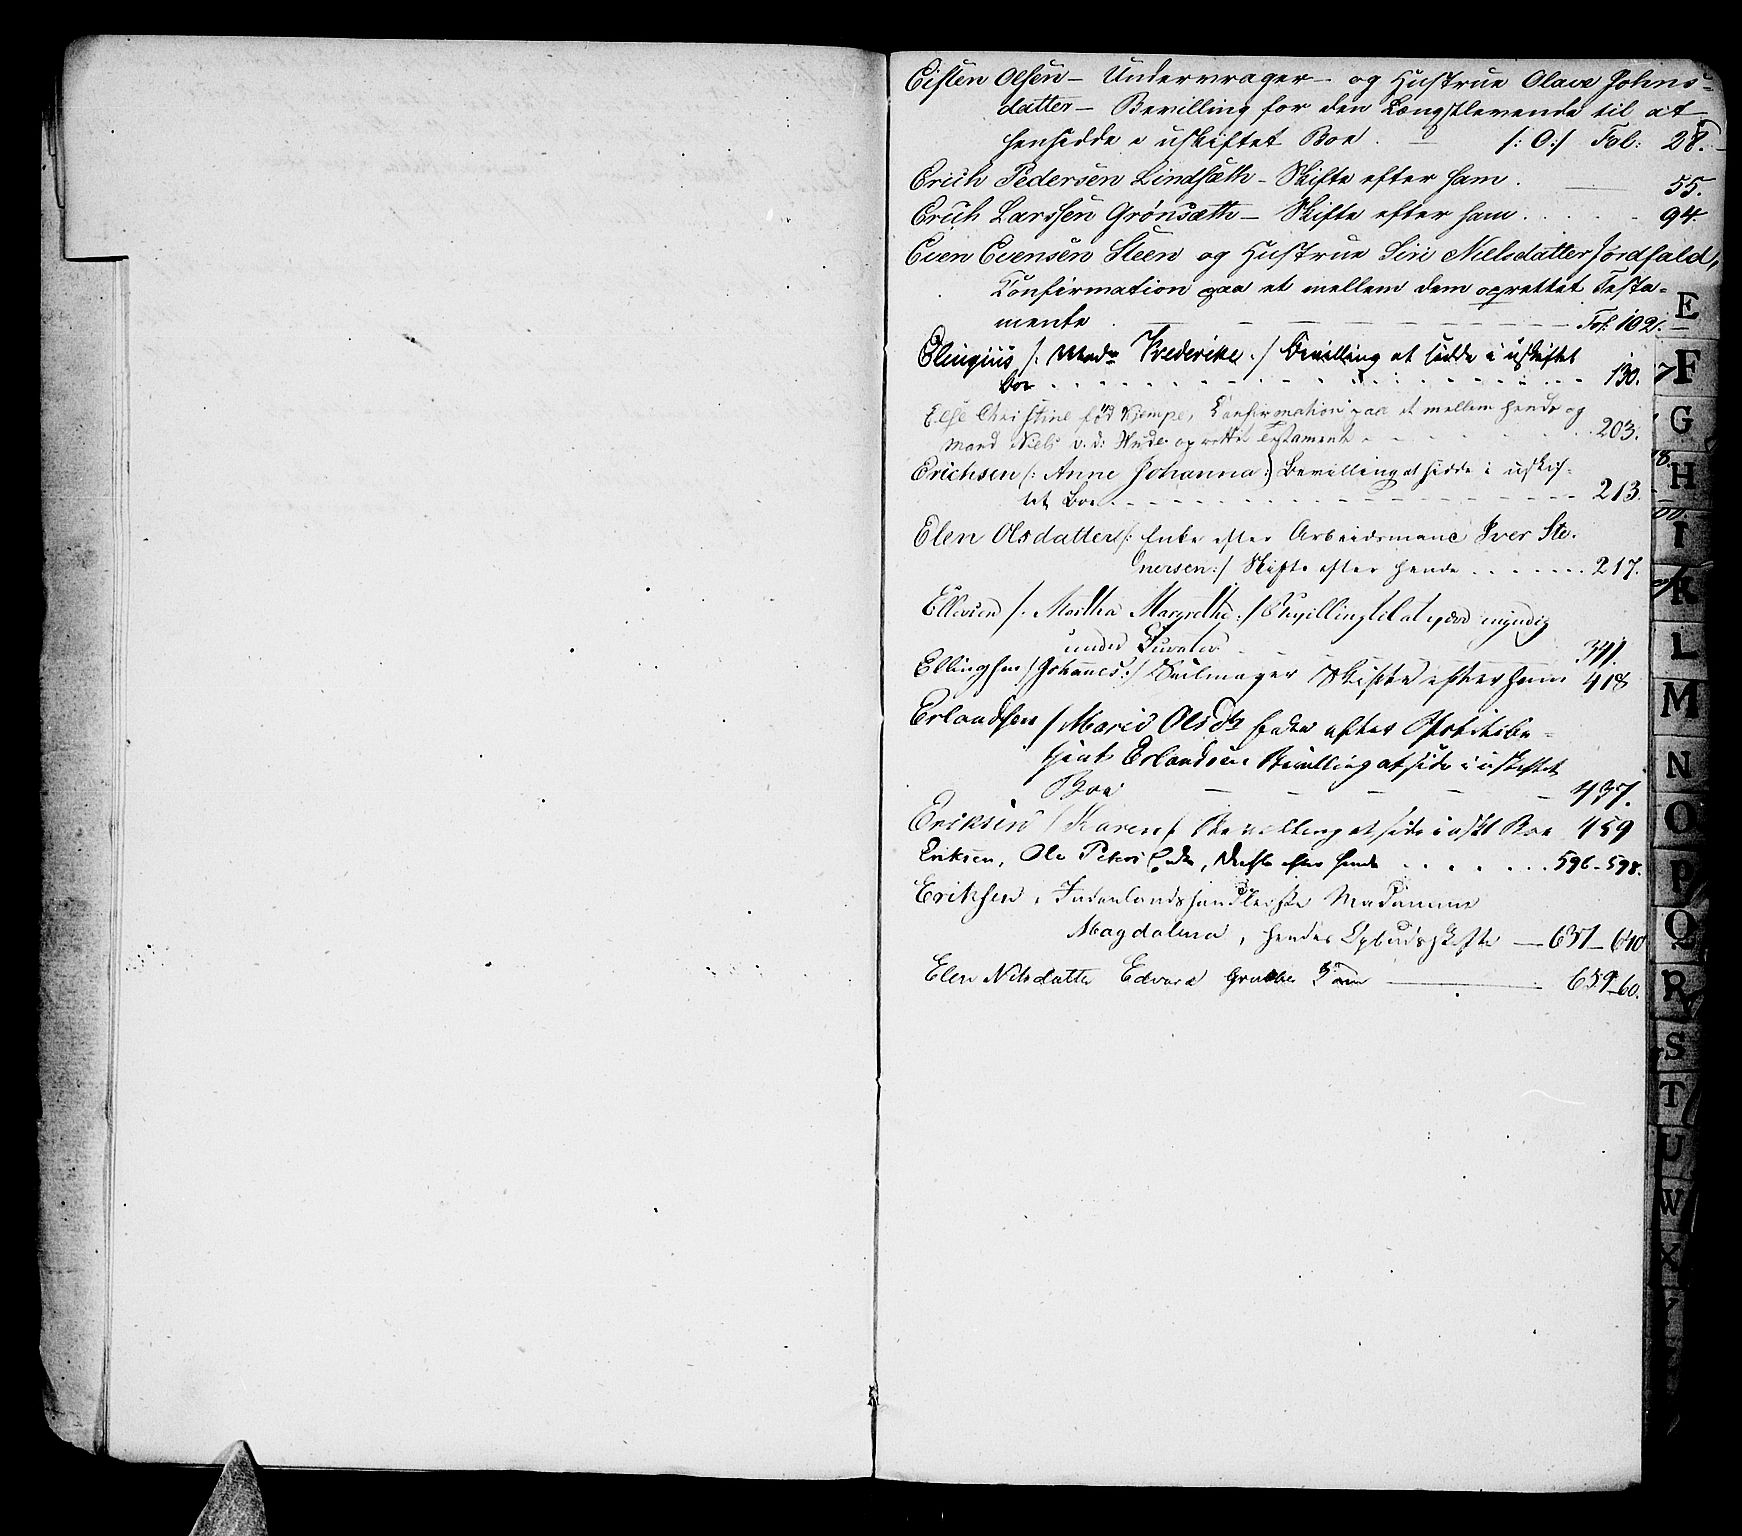 Eisten Olsen – Undervrager – og Hustrue Olave Johns-
datter – Bevilling for den Længstlevende til at
hensidde i uskiftet Boe . – /:O:/ Fol: 28.
Erich Pedersen Lindsæth – Skifte efter ham . – 55.
Erich Larssen Grønsæth – Skifte efter ham . . . . 94.
Even Evensen Steen og Hustrue Siri Nielsdatter Jordfald,
Confirmation paa et mellem dem oprettet Testa-
mente . – – – – – – Fol: 102.
Elingius /: Mad. Frederikke :/ Bevilling at sidde i uskiftet
Boe . . . . . . . 130.
Else Christine fød Kjempe, Confirmation paa et mellem hende og
Mand Niels v. d. Hude oprettet Testamente . . . . 203.
Erichsen (: Anne Johanna :) Bevilling at sidde i uskif-
tet Boe . . . . . 213.
Elen Olsdatter /: Enke efter Arbeidsmand Iver Ste-
nersen :/ Skifte efter hende . . . . . . 217.
Ellevsen /: Martha Margrethe :/ Bevilling til at være myndig
under Curator . . 341.
Ellingsen /Johannes:/ Seilmager Skifte efter ham 418
Erlandsen / Marie Olsdtr Enke efter
Erlandsen Bevilling at side i uskiftet
Boe – – – – 437.
Eriksen / Karen / Bevilling at side i uskt Boe 459
Eriksen, Ole Peters Enke, Skifte efter hende . . . . . 596-598.
Eriksen, Indenlandshandlerske Madamme
Magdalena, hendes Opbudsskifte — 637-640
Elen Nilsdatter Edvard Grubbe — 659-60.
E
F
G
H
I
K
L
M
N
O
P
Q
R
S
T
U
W
X